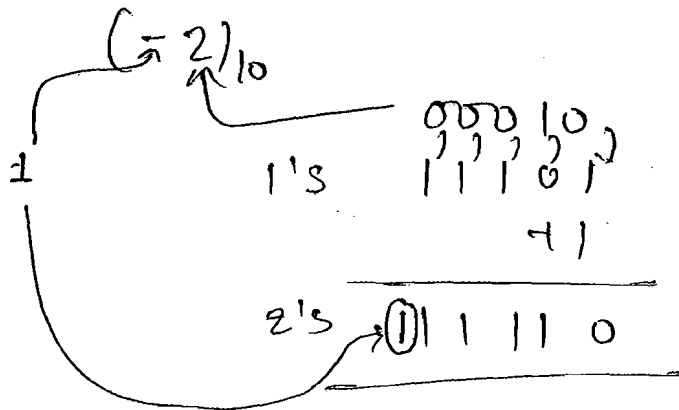 (-2)10
0 0 0 1 0
1 1's 1 1 1 0 1
+1
2's 1 1 1 1 1 0